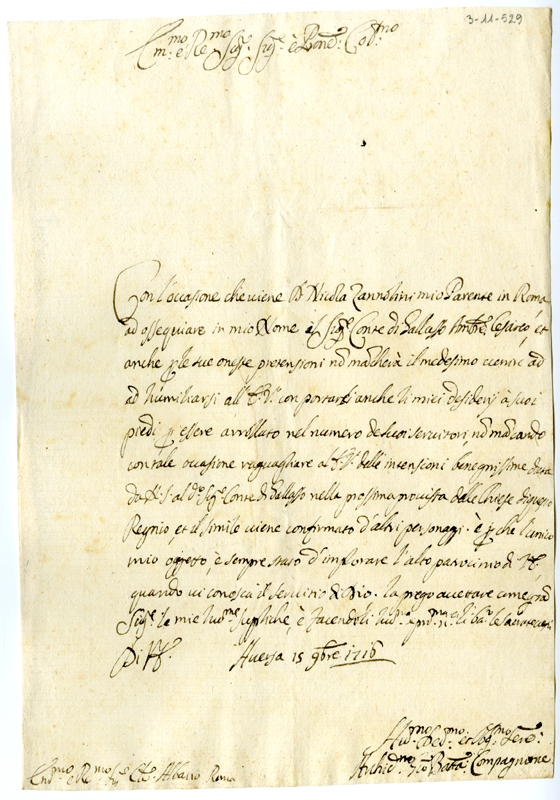 3-11-529
Em:mo e Re:mo Sig:e Sig:e è Pad:
Con l'occasione che viene D Nicola Zannolini mio Parente in Roma
ad ossequiare in mio Nome il Sig:e Conte di Gallasso Cesareo, et
anche p le sue oneste pretensioni no mancherà il medesimo venire ad
ad humiliarsi all' con portarsi anche li miei desiderj à suoi
piedi p essere arrollato nel numero de suoi servitori no mancando
con tale occasione raguagliare delle intensioni benegnissime
da al Sig:e Conte di Gallasso nella prossima provista delle Chiese di questo
Regnio, et il simile viene confirmato d'altri personaggi. è che l'unico
mio oggetto, è sempre stato d'implorare l'alto patrocinio di
quando vi conosca il servitio di Dio. la prego accettare come
Sig:e le mie suppliche, è facendoli li
Di Aversa 15 9bre 1716
Archid:no Gio Batta: Compagnone
e Re:mo Albano Roma